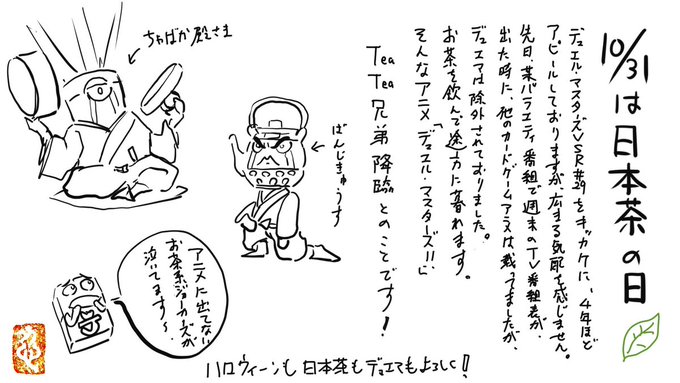 10/31は日本茶の日
デュエル・マスターズVSR#29をキッカケに、4年ほど
アピールしておりますが、広まる気配を感じません。
先日、某バラエティ番組で週末のTV番組表が
出た時に、他のカードゲームアニメは載ってましたが、
デュエマは除外されておりました。
お茶を飲んで途方に暮れます。
そんなアニメ「デュエル・マスターズ!!」に
Tea
Tea兄弟降臨とのことです!
ちゃばか殿さま
ばんじきゅうす
アニメに出てない
お茶系ジョーカーズが
泣いてます〜。
ハロウィーンも日本茶もデュエマもよろしく!